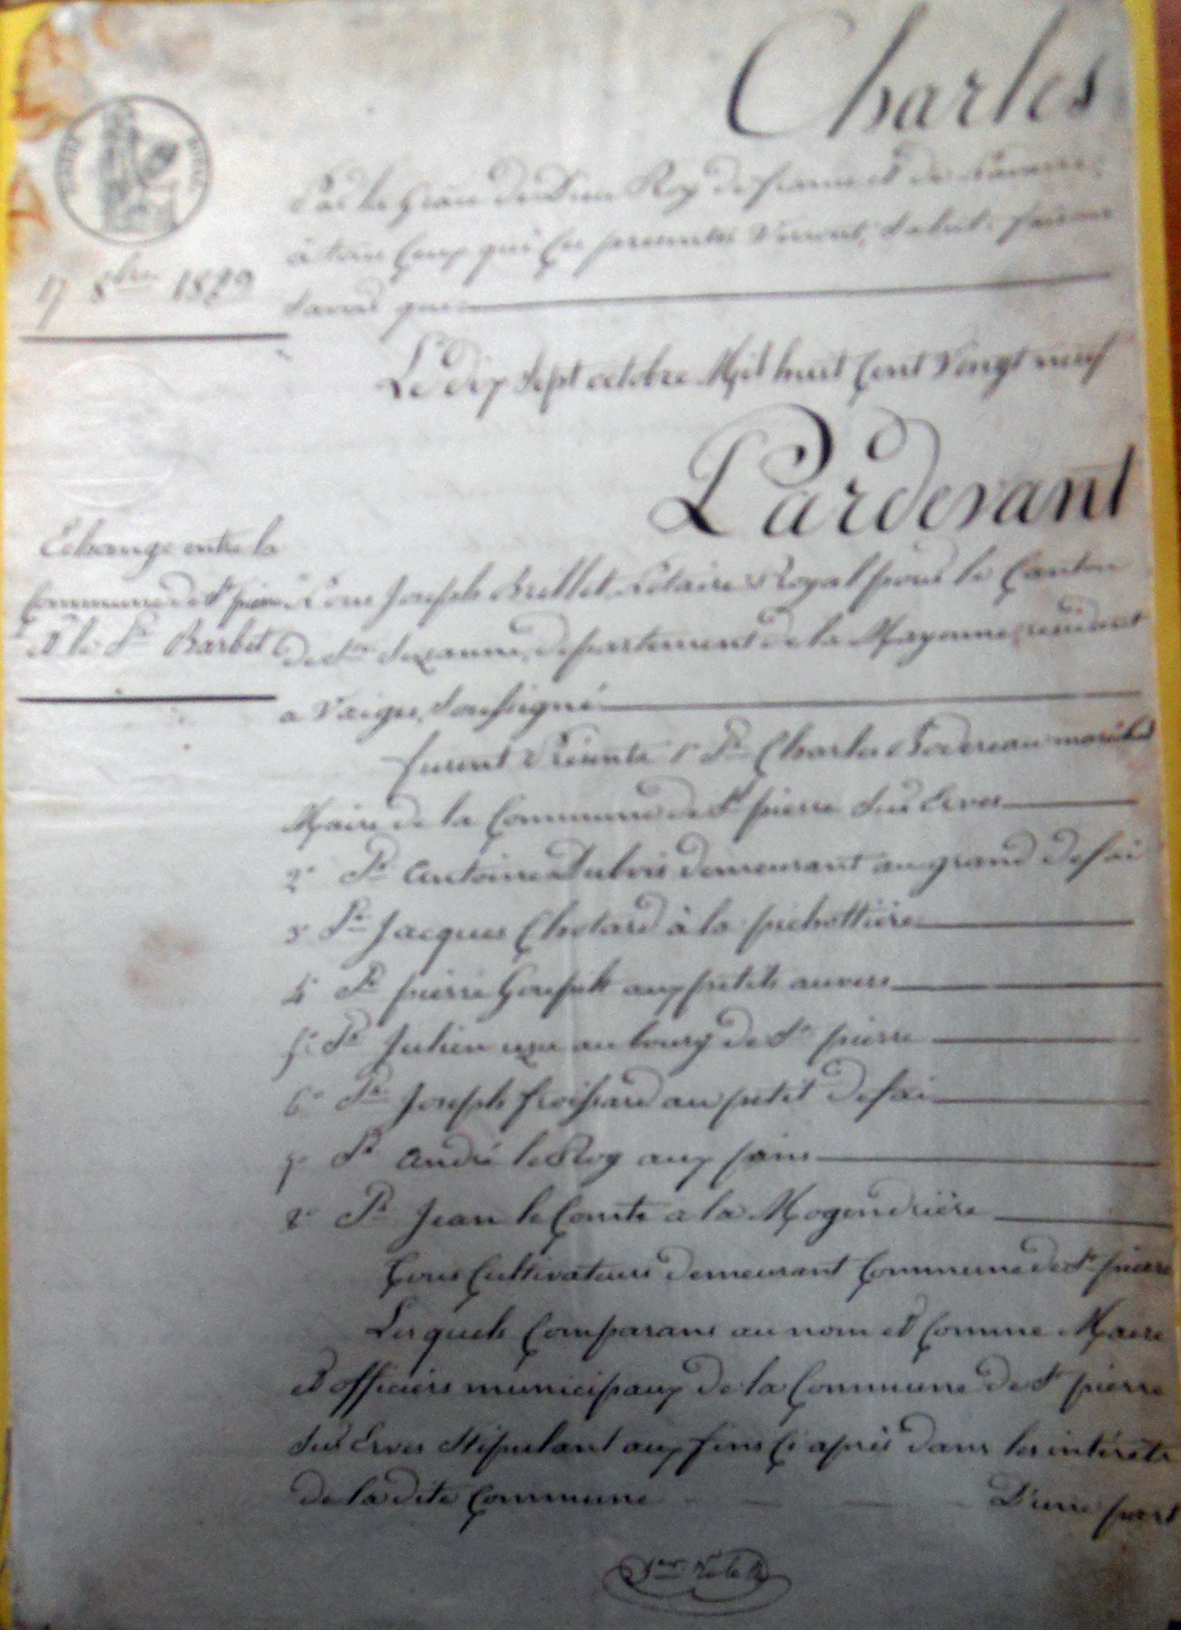 Charles
Par la Grace de Dieu Roy de france et de Navarre,
à tous Ceux qui Ces presentes Verront, Salut. faisons
Savoir que
17 8bre 1829
Le dix Sept octobre Mil huit Cent Vingt neuf
Pardevant
Echange entre la
Commune de St pierre
Et le Sr Barbet
Joseph Brillet Notaire Royal pour le Canton
de Ste Suzanne, département de la Mayenne, résidant
a Vaiges, Soussigné
furent Présents 1° Sr Charles maréchal
Maire de la Commune de St pierre Sur Erves
2° Sr Antoine Dubois demeurant au grand défai
3° Sr Jacques Chotard à la pichottière
4° Sr pierre aux petits auvers
5° Sr Julien au bourg de St pierre
6° Sr Joseph froissard au petit défai
7° Sr André le Roy aux
8° Sr Jean le Comte a la Mogendrière
Tous Cultivateurs demeurant Commune de St pierre
Lesquels Comparans au nom et Comme Maire
et officiers municipaux de la Commune de St pierre
Sur Erves Stipulant aux fins Ci après dans les intérêts
de la dite Commune D'une part